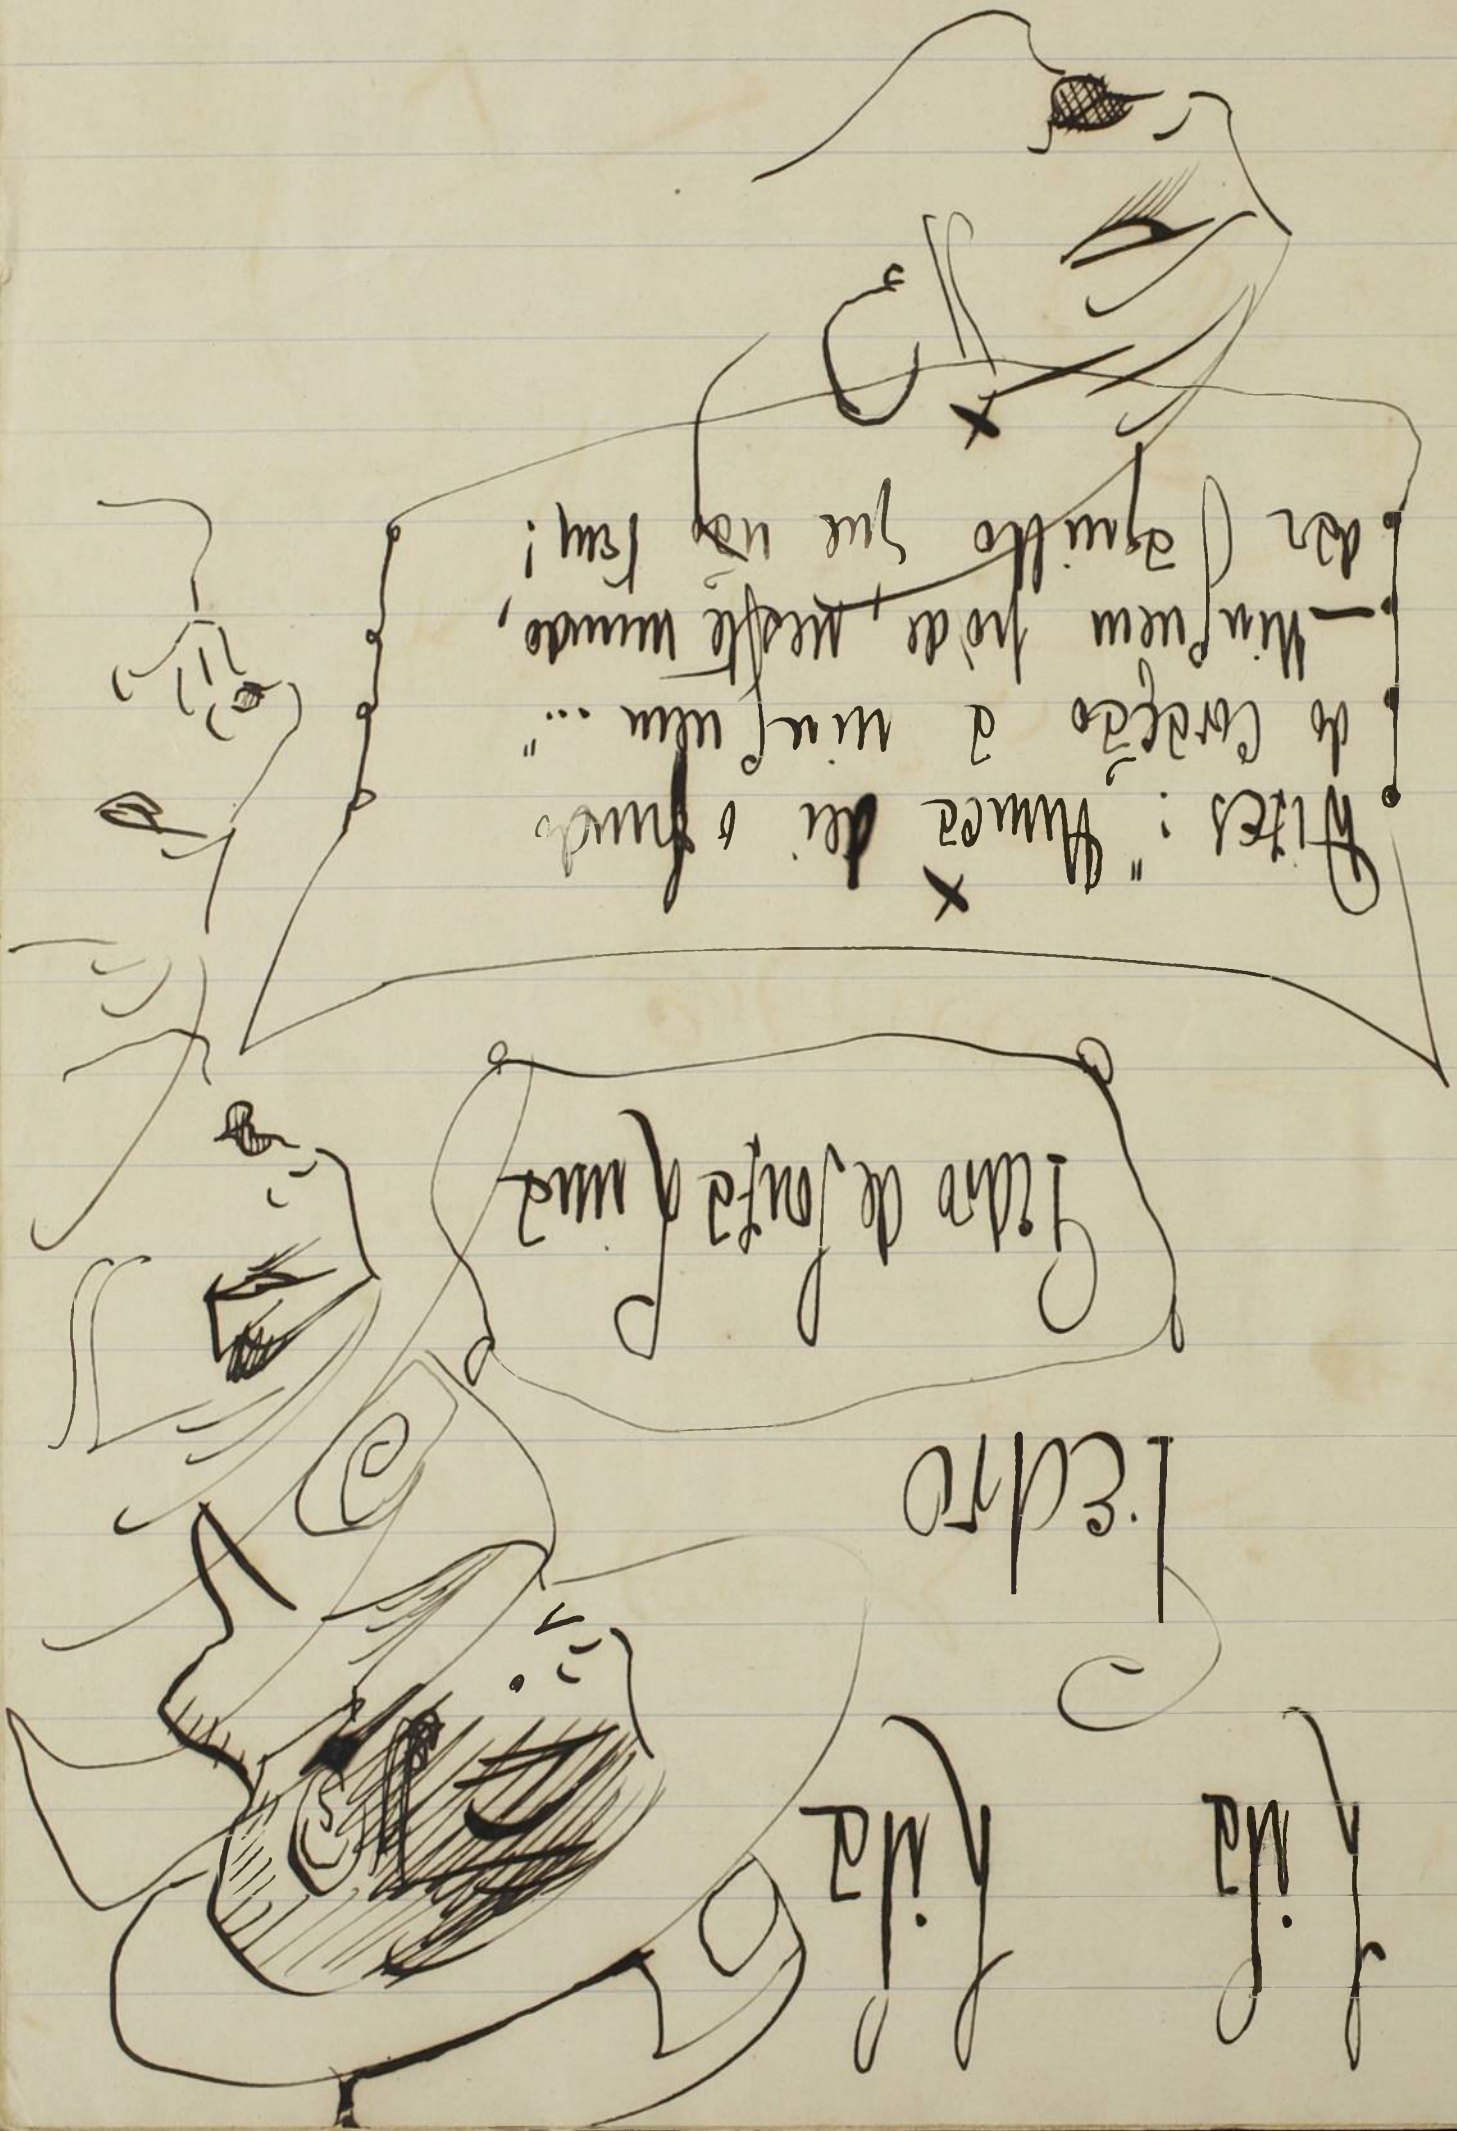 Lila Lila
Pedro
Pedro de Souza Lima
x
Dizes: "Nunca dei o fundo
do Coração a ninguem..."
— Ninguem póde, neste mundo,
dar aquillo que não tem!
x